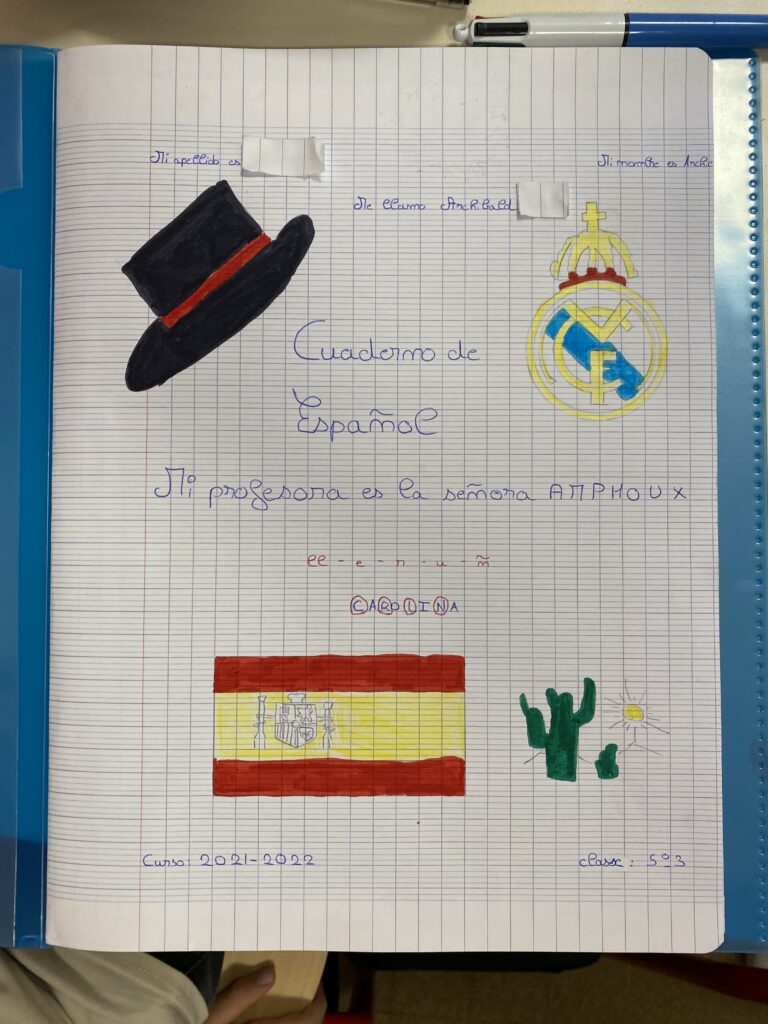 Mi apellido es
Mi nombre es Archie
Me llamo Archibald
Cuaderno de
Español
Mi profesora es la señora AMPHOUX
ll - e - r - u - ñ
CAROLINA
Curso: 2021-2022
clase: 5º3